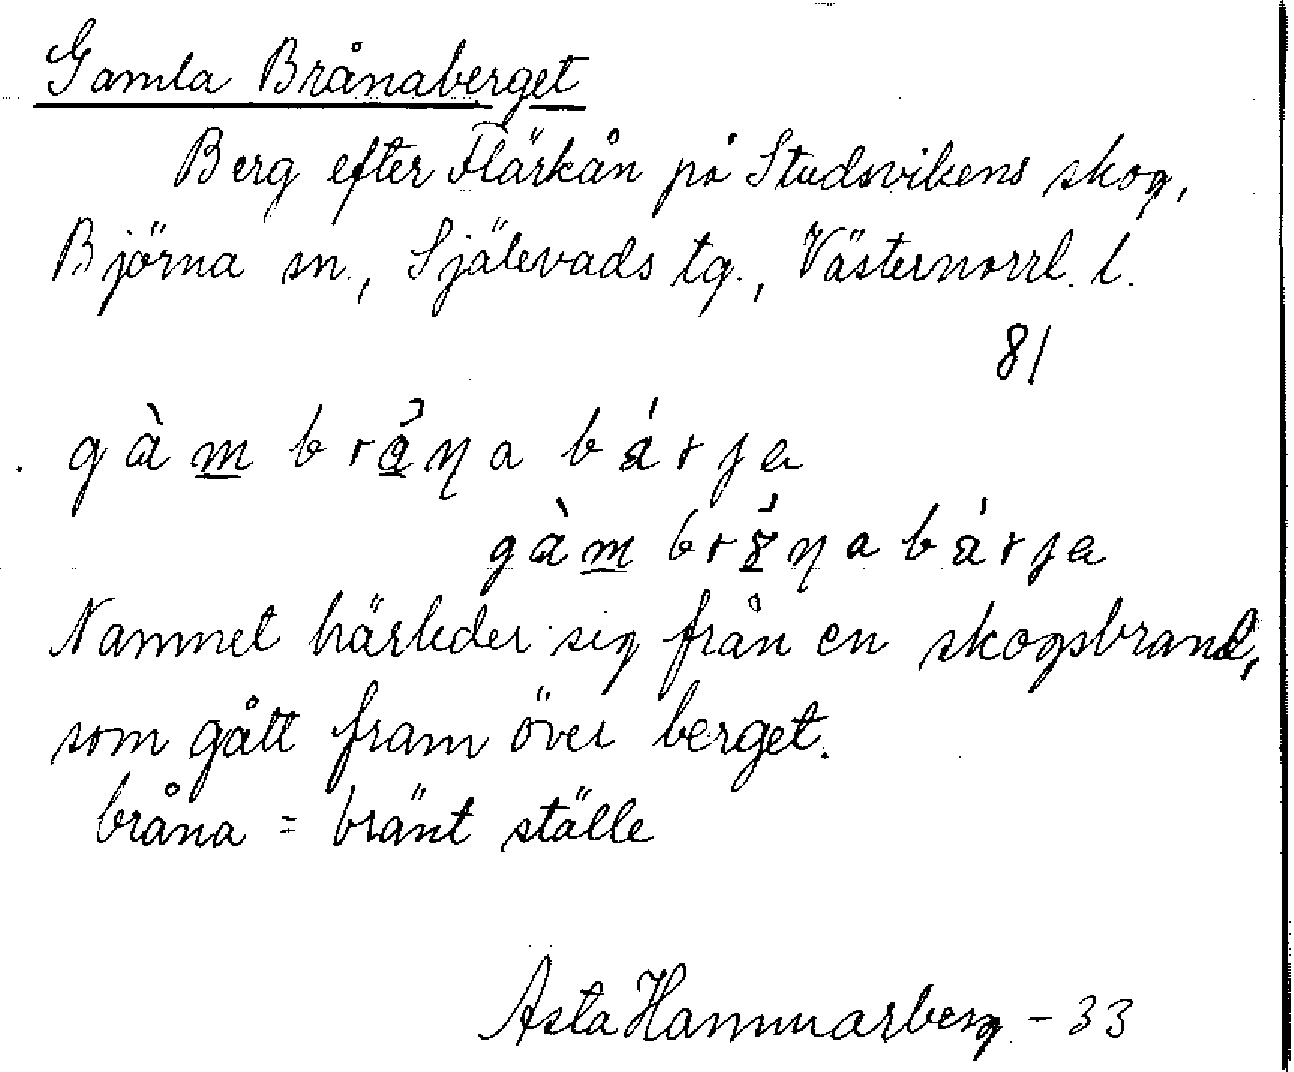 Gamla Brånaberget
Berg efter Flärkån på Studsvikens skog,
Björna sn., Själevads tg., Västernorrl. l.
81
gàm brǻŋa bárja
gàm brŏ́ŋa bárja
Namnet härleder sig från en skogsbrand,
som gått fram över berget.
bråna = bränt ställe
Asta Hammarberg - 33